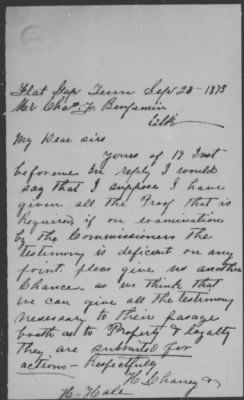 Flat Gap Tenn Sep 23 - 1873
Mr Chas. F. Benjamin
Clk
My Dear sirs
yours of 19 Inst
before me In reply I would
say that I suppose I have
given all the Proof that is
Required if on examination
by the Commissioners the
testimony is deficent on any
point. pleas give us another
Chance. as we think that
we can give all the testimony
nesessary to their pasage
booth as to Property & loyalty
they are submited for
actions - Respectfully
H Chaney &
H. Hale